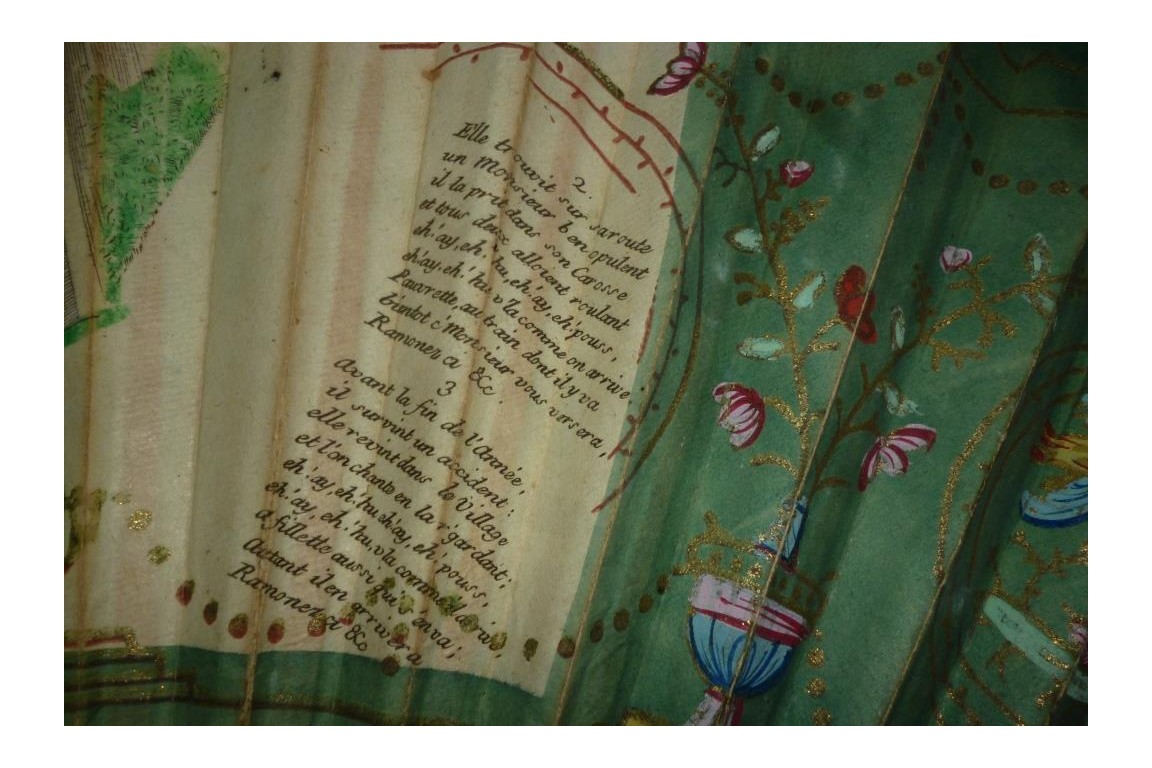 2.
Elle trouvit sur sa route
un Monsieur b en opulent
il la prit dans son Carosse
et tous deux alloient roulant
eh! ay, eh! hu, eh! ay, eh! pouss,
eh! ay, eh! hu, v'la comme on arrive,
Pauvrette, au train dont il y va
bientot c' Monsieur vous versera,
Ramonez ci &c.
3
Avant la fin de l'Année,
il survint un accident:
elle revint dans le Village
et l'on chante en la r'gardant;
eh! ay, eh! hu eh! ay, eh! pouss,
eh! ay, eh! hu, v'la comme
a fillette aussi qui s'en va;
Autant il en arrivera
Ramonez ci &c